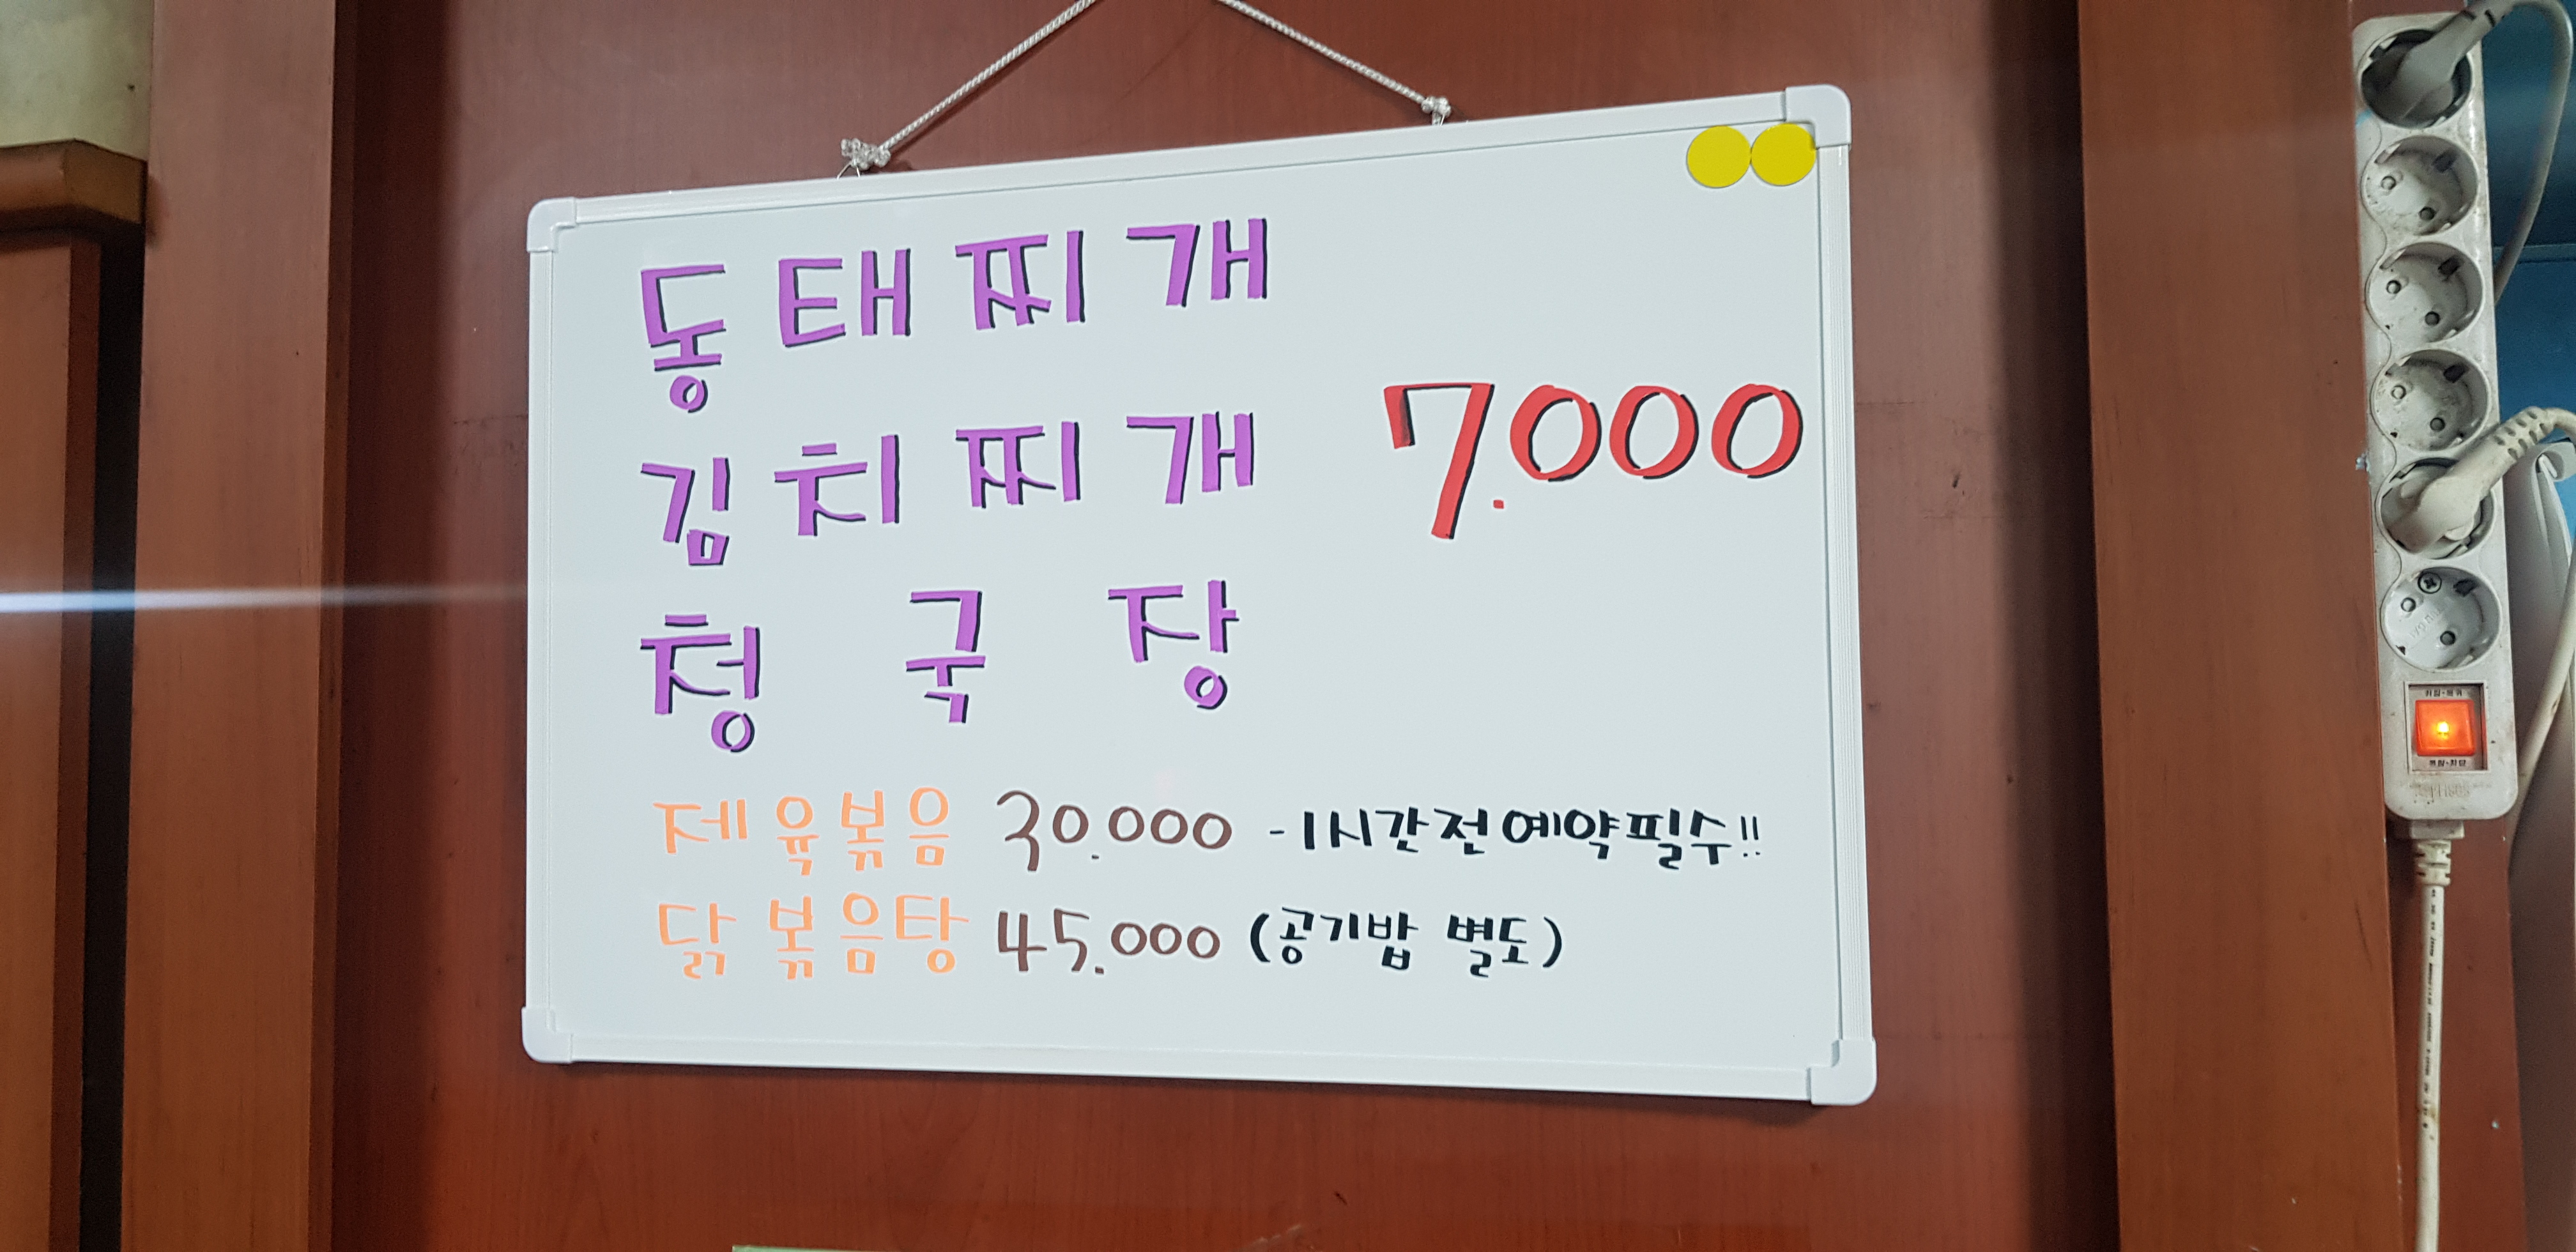 동태찌개
김치찌개 7.000
청국장
제육볶음 30.000 -1시간전예약필수!!
닭볶음탕 45.000 (공기밥 별도)